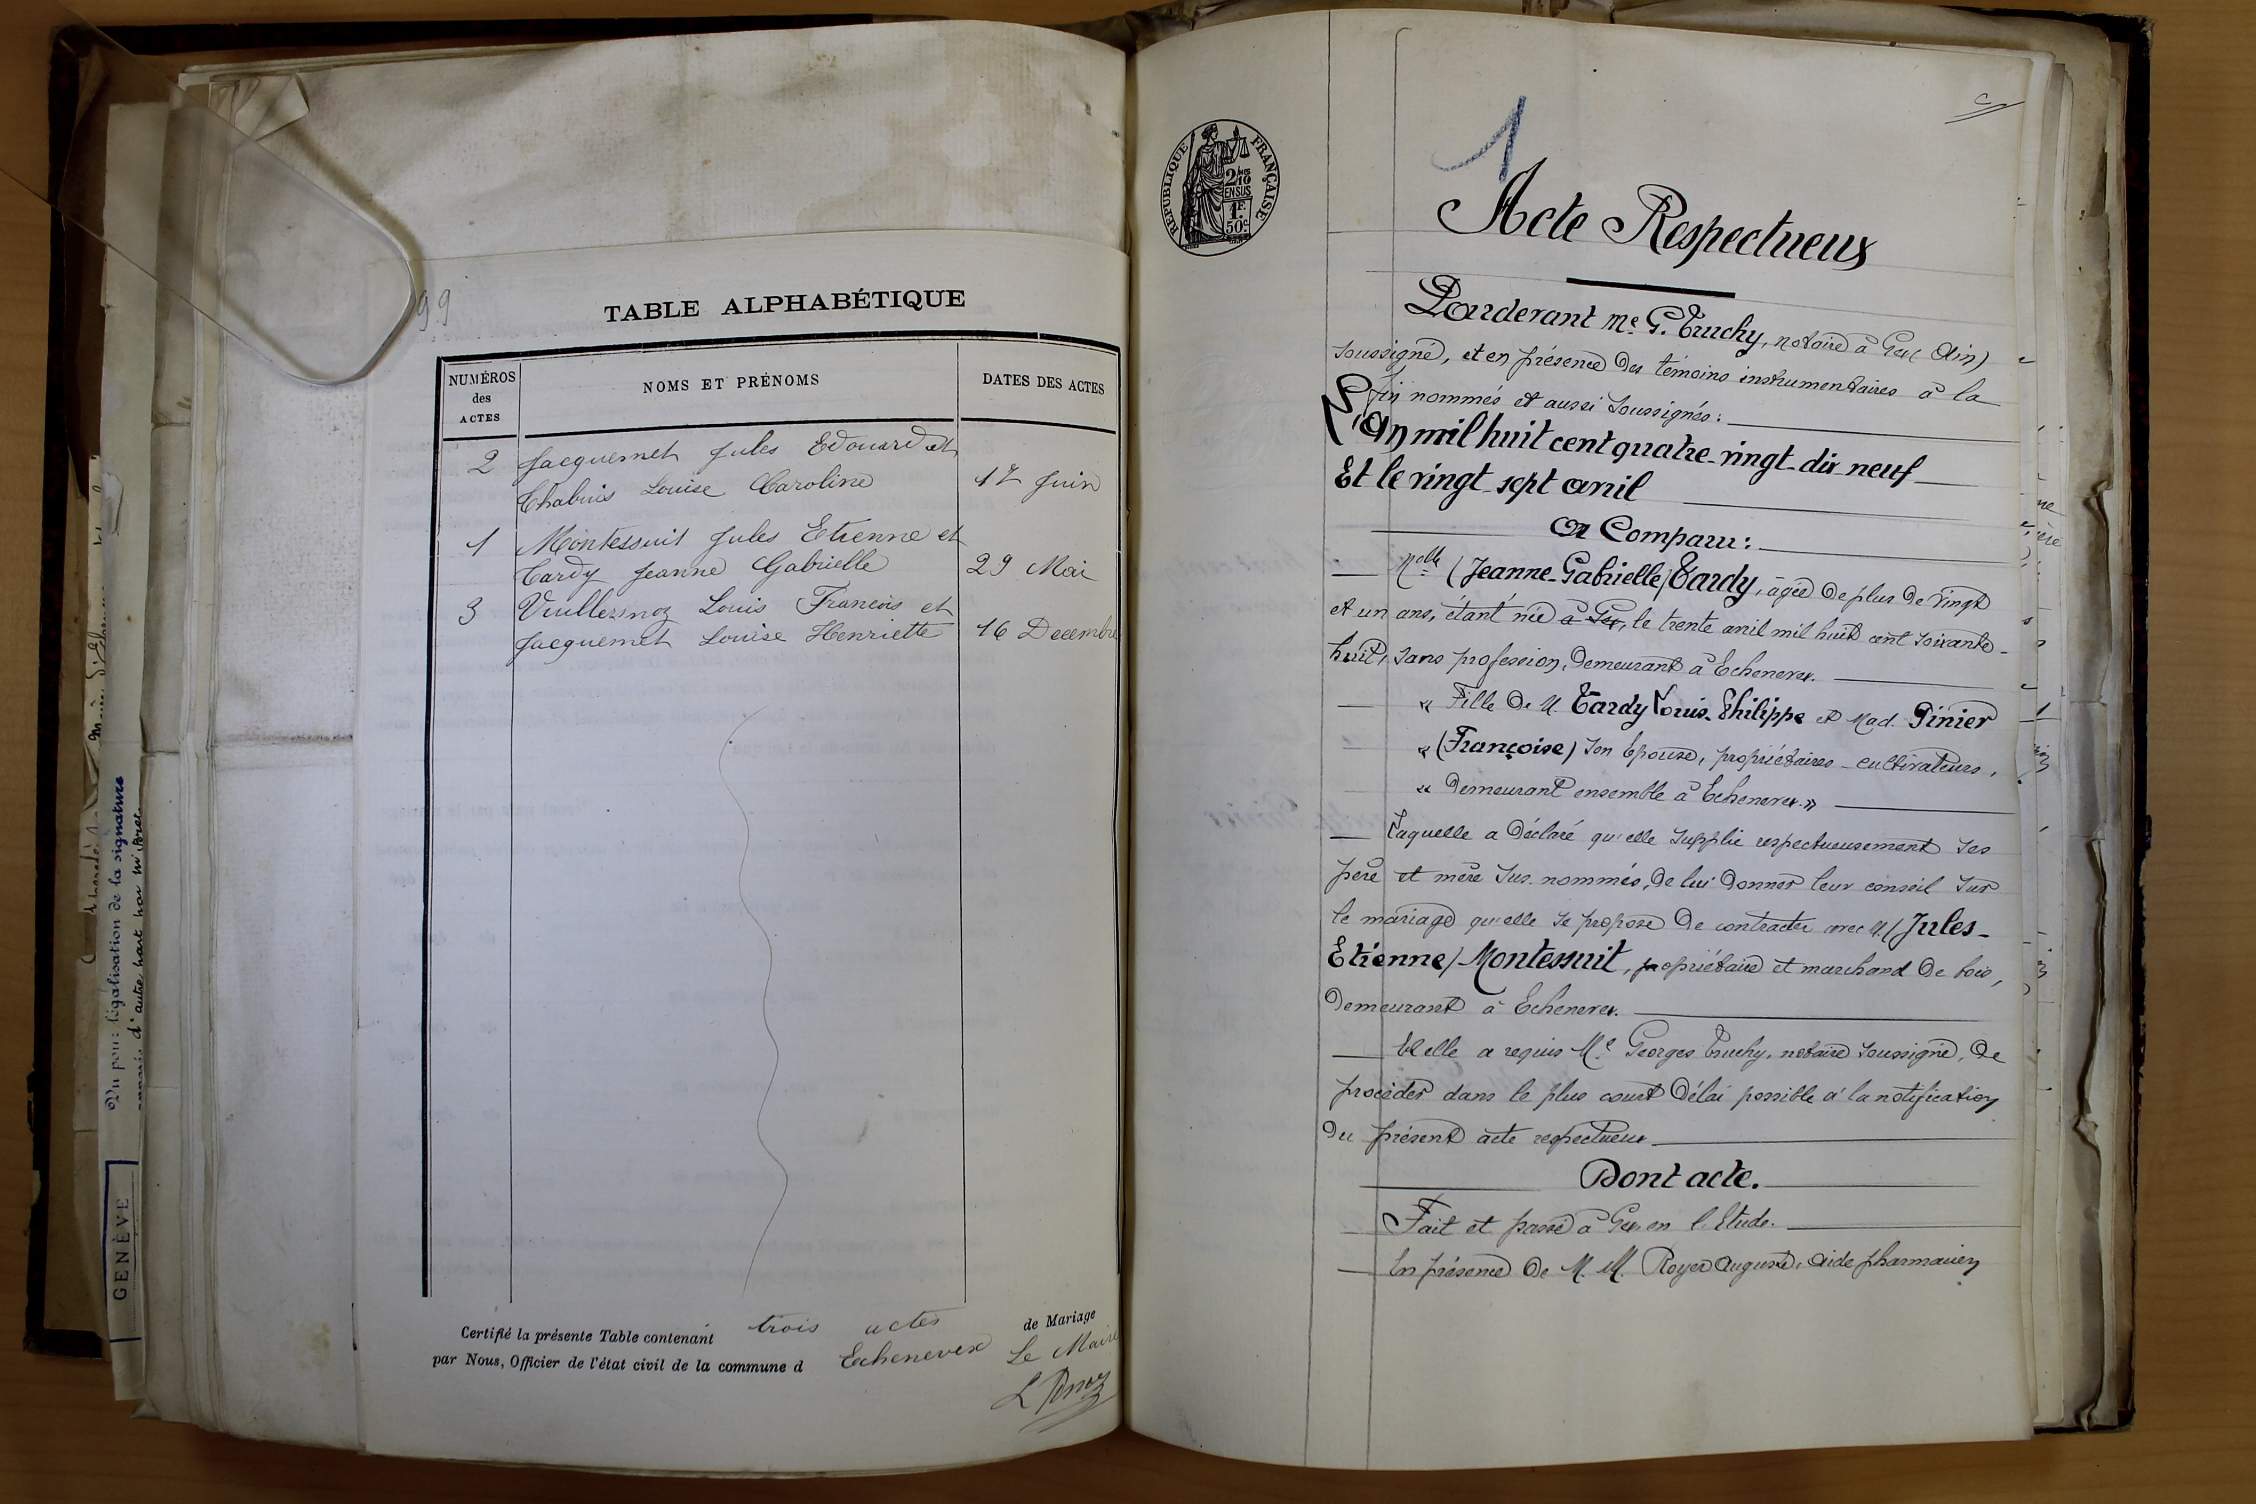 99
TABLE ALPHABÉTIQUE
NUMÉROS
des
ACTES
NOMS ET PRÉNOMS
DATES DES ACTES
2 Jacquemet Jules Edouard et
Chabuis Louise Caroline 17 Juin
1 Montessuit Jules Etienne et
Tardy Jeanne Gabrielle 29 Mai
3 Vuillermoz Louis François et
Jacquemet Louise Henriette 16 Decembre
Certifié la présente Table contenant trois actes de Mariage
par Nous, Officier de l'état civil de la commune d Echenevex Le Maire
Vu pour légalisation de la signature
GENÈVE
RÉPUBLIQUE FRANÇAISE
2/10
EN SUS
1F
50c
1
Acte Respectueux
Pardevant Me G. Truchy, notaire à Gex (Ain)
soussigné, et en présence des témoins instrumentaires à la
fin nommés et aussi soussignés:
L'An mil huit cent quatre-vingt-dix-neuf
Et le vingt-sept avril
A Comparu:
Melle (Jeanne-Gabrielle) Tardy, âgée de plus de vingt
et un ans, étant née à Gex, le trente avril mil huit cent soixante-
huit, sans profession, demeurant à Echenevex.
« Fille de M. Tardy Louis-Philippe et Mad. Pinier
« (Françoise) son épouse, propriétaires-cultivateurs,
« demeurant ensemble à Echenevex.»
Laquelle a déclaré qu'elle supplie respectueusement ses
père et mère sus-nommés, de lui donner leur conseil sur
le mariage qu'elle se propose de contracter avec M. (Jules-
Etienne) Montessuit, propriétaire et marchand de bois,
demeurant à Echenevex.
Et elle a requis Me Georges Truchy, notaire soussigné, de
procéder dans le plus court délai possible à la notification
du présent acte respectueux
Dont acte.
Fait et passé à Gex en l'Etude.
En présence de M.M. Royer Auguste, aide pharmacien